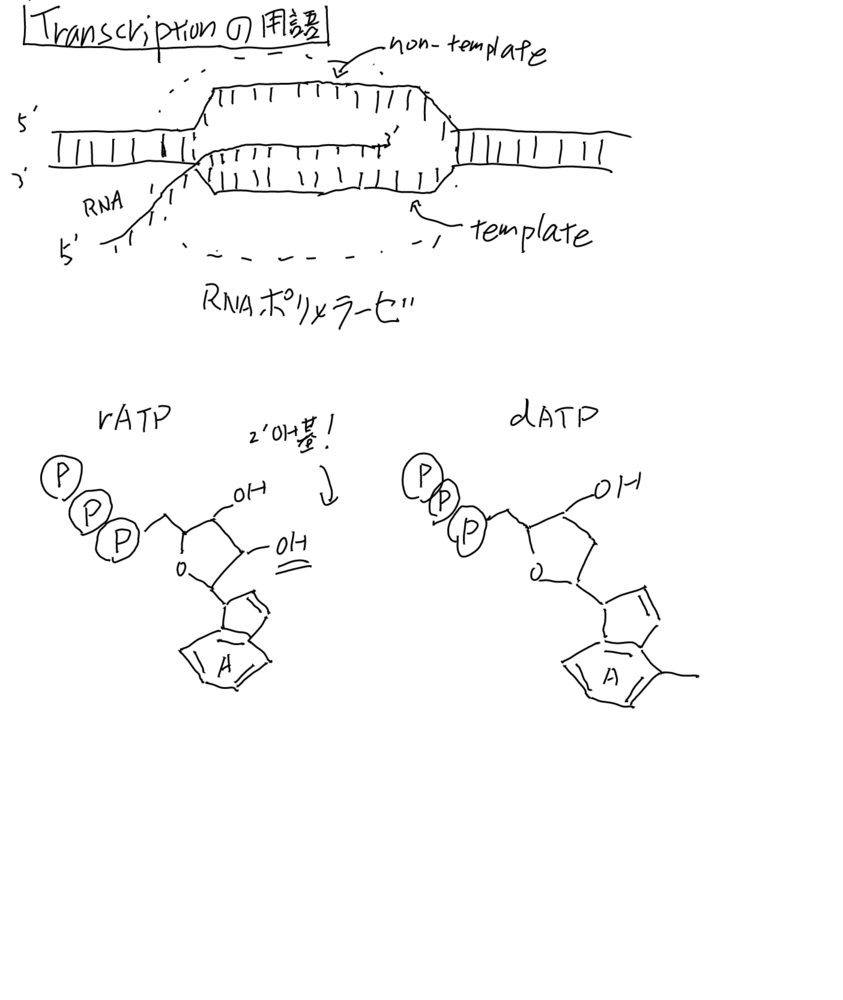 Transcriptionの用語
non-template
5'
3'
3'
RNA
5'
template
RNAポリメラーゼ
rATP
2'OH基!
dATP
P
P
P
OH
OH
O
A
P
P
P
OH
O
A